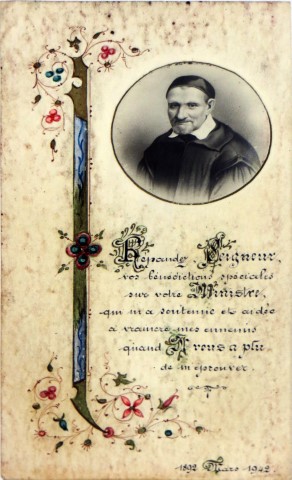 Répandez Seigneur,
vos bénédictions spéciales
sur votre Ministre,
qui m'a soutenue et aidée
à vaincre mes ennemis
quand Il vous a plu
de m'éprouver.
1892 Mars 1942